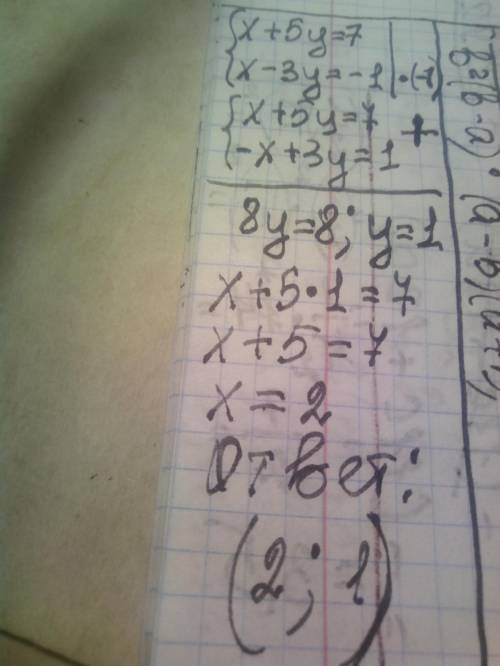 {x+5y=7
{x-3y=-1 | ·(-1)
{x+5y=7
{-x+3y=1 +
8y=8; y=1
x+5·1=7
x+5=7
x=2
Ответ:
(2; 1)